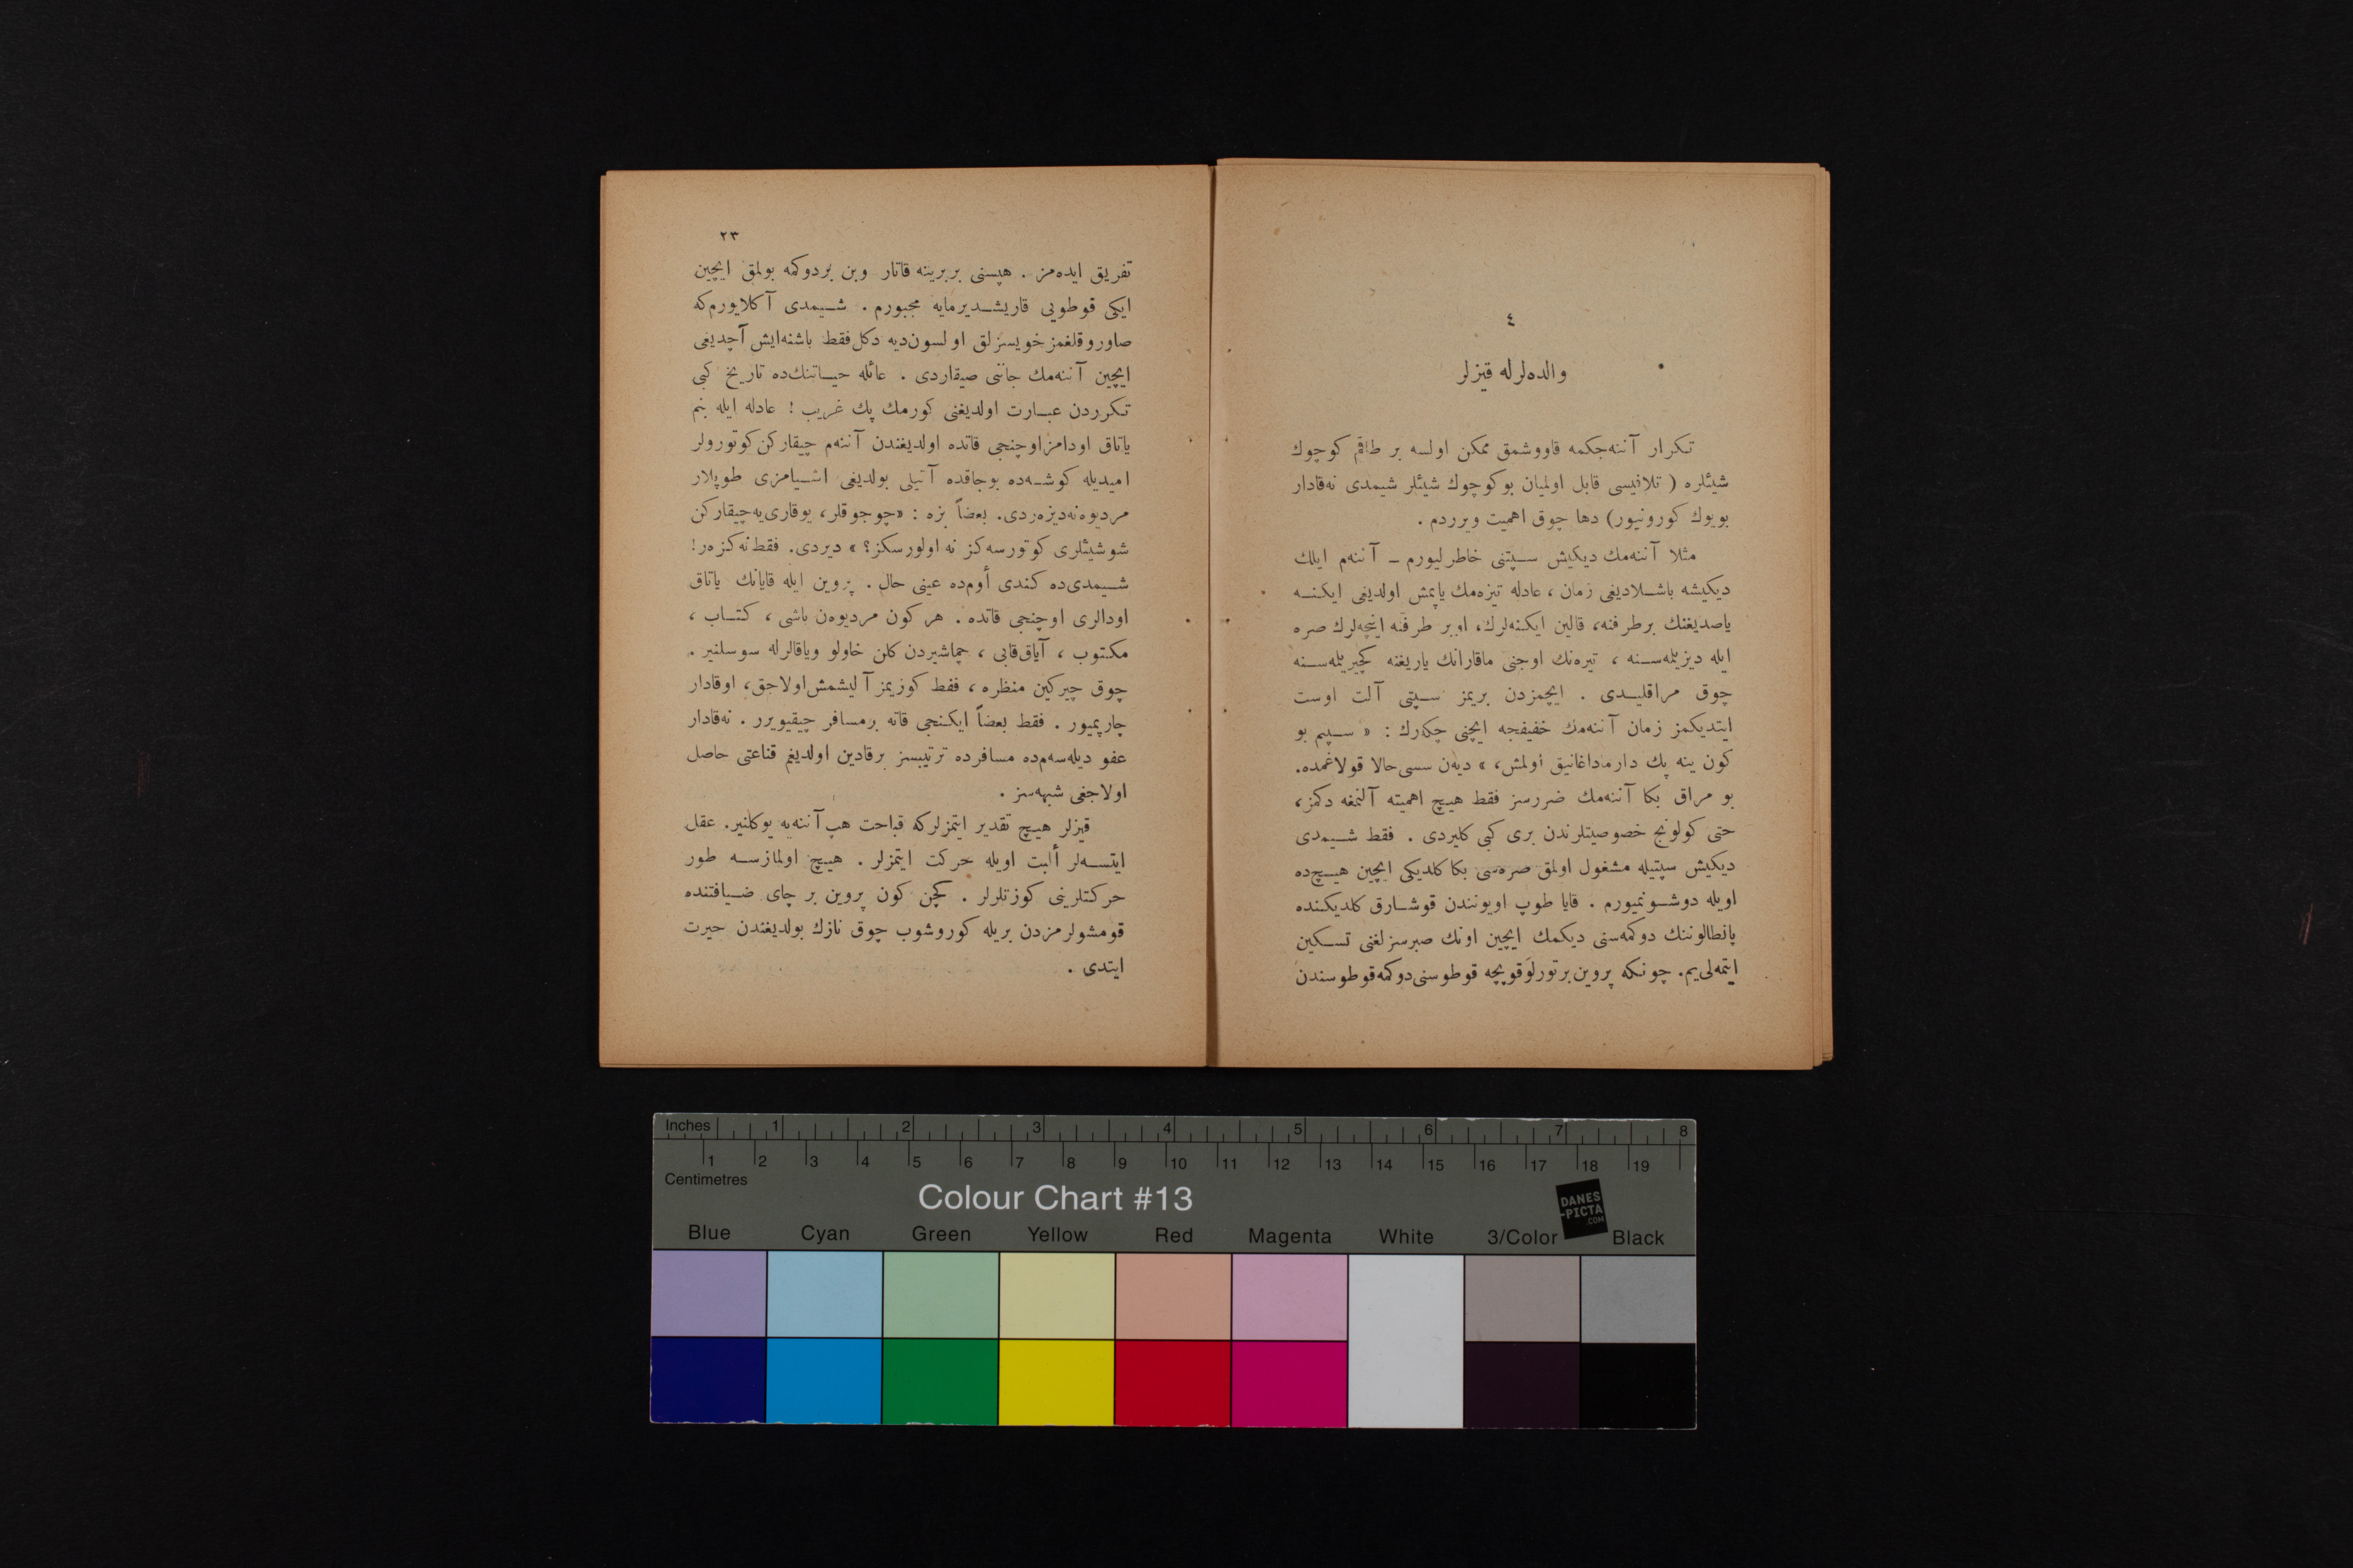 ٤
والده‌لرله قیزلر
تکرار آننه‌جکمه قاووشمق ممکن اولسه بر طاقم کوچوك
شیئلره ( تلافیسی قابل اولمیان بوکوچوك شیئلر شیمدی نه‌قادار
بویوك کورونیور) دها چوق اهمیت ویرردم .
مثلا آننه‌مك دیکیش سپتنی خاطرلیورم ـ آننه‌م ایلك
دیکیشه باشلادیغی زمان ، عادله تیزه‌مك یاپمش اولدیغی ایکنه
یاصدیغنك برطرفنه، قالین ایکنه‌لرك، اوبر طرفنه اینجه‌لرك صره
ایله دیزیلمه‌سنه ، تیره‌نك اوجنی ماقارانك یاریغنه کچیریلمه‌سنه
چوق مراقلیدی . ایچمزدن بریمز سپتی آلت اوست
ایتدیکمز زمان آننه‌مك خفیفجه ایچنی چکه‌رك : « سپتم بو
کون ینه پك دارماداغانیق اولمش، » دیه‌ن سسی حالا قولاغمده.
بو مراق بکا آننه‌مك ضررسز فقط هیچ اهمیته آلنمغه دکمز،
حتی کولونج خصوصیتلرندن بری کبی کلیردی . فقط شیمدی
دیکیش سپتیله مشغول اولمق صره‌سی بکا کلدیکی ایچین هیچ‌ده
اویله دوشونمیورم . قایا طوپ اویونندن قوشارق کلدیکنده
پانطالوننك دوکمه‌سنی دیکمك ایچین اونك صبرسزلغنی تسکین
ایتمه‌لی‌یم. چونکه پروین برتورلو قوپچه قوطوسنی دوکمه قوطوسندن
٢٣
تفریق ایده‌مز . هپسنی بربرینه قاتار وبن بردوکمه بولمق ایچین
ایکی قوطویی قاریشدیرمایه مجبورم . شیمدی آکلایورم‌که
صاوروقلغمز خویسزلق اولسون‌دیه دکل فقط باشنه‌ایش آچدیغی
ایچین آننه‌مك جاننی صیقاردی . عائله حیاتنك‌ده تاریخ کبی
تکرردن عبارت اولدیغنی کورمك پك غریب ! عادله ایله بنم
یاتاق اودامز اوچنجی قاتده اولدیغندن آننه‌م چیقارکن کوتورولر
امیدیله کوشه‌ده بوجاقده آتیلی بولدیغی اشیامزی طوپلار
مردیوه‌نه‌دیزه‌ردی. بعضاً بزه : «چوجوقلر، یوقاری‌یه‌چیقارکن
شوشیئلری کوتورسه‌کز نه اولورسکز؟ » دیردی. فقط نه‌کزه‌ر!
شیمدی‌ده کندی أوم‌ده عینی حال . پروین ایله قایانك یاتاق
اودالری اوچنجی قاتده . هر کون مردیوه‌ن باشی ، کتاب ،
مکتوب ، آیاق‌قابی ، چماشیردن کلن خاولو ویاقالرله سوسلنیر .
چوق چیرکین منظره ، فقط کوزیمز آلیشمش‌اولاجق، اوقادار
چارپمیور . فقط بعضاً ایکنجی قاته برمسافر چیقیویرر . نه‌قادار
عفو دیله‌سه‌م‌ده مسافرده ترتیبسز برقادین اولدیغم قناعتی حاصل
اولاجغی شبهه‌سز .
قیزلر هیچ تقدیر ایتمزلرکه قباحت هپ آننه‌یه یوکلنیر. عقل
ایتسه‌لر ألبت اویله حرکت ایتمزلر . هیچ اولمازسه طور
حرکتلرینی کوزتلرلر . کچن کون پروین بر چای ضیافتنده
قومشولرمزدن بریله کوروشوب چوق نازك بولدیغندن حیرت
ایتدی .
Inches 1 2 3 4 5 6 7 8
1 2 3 4 5 6 7 8 9 10 11 12 13 14 15 16 17 18 19
Centimetres
Colour Chart #13
DANES
-PICTA
.COM
Blue Cyan Green Yellow Red Magenta White 3/Color Black